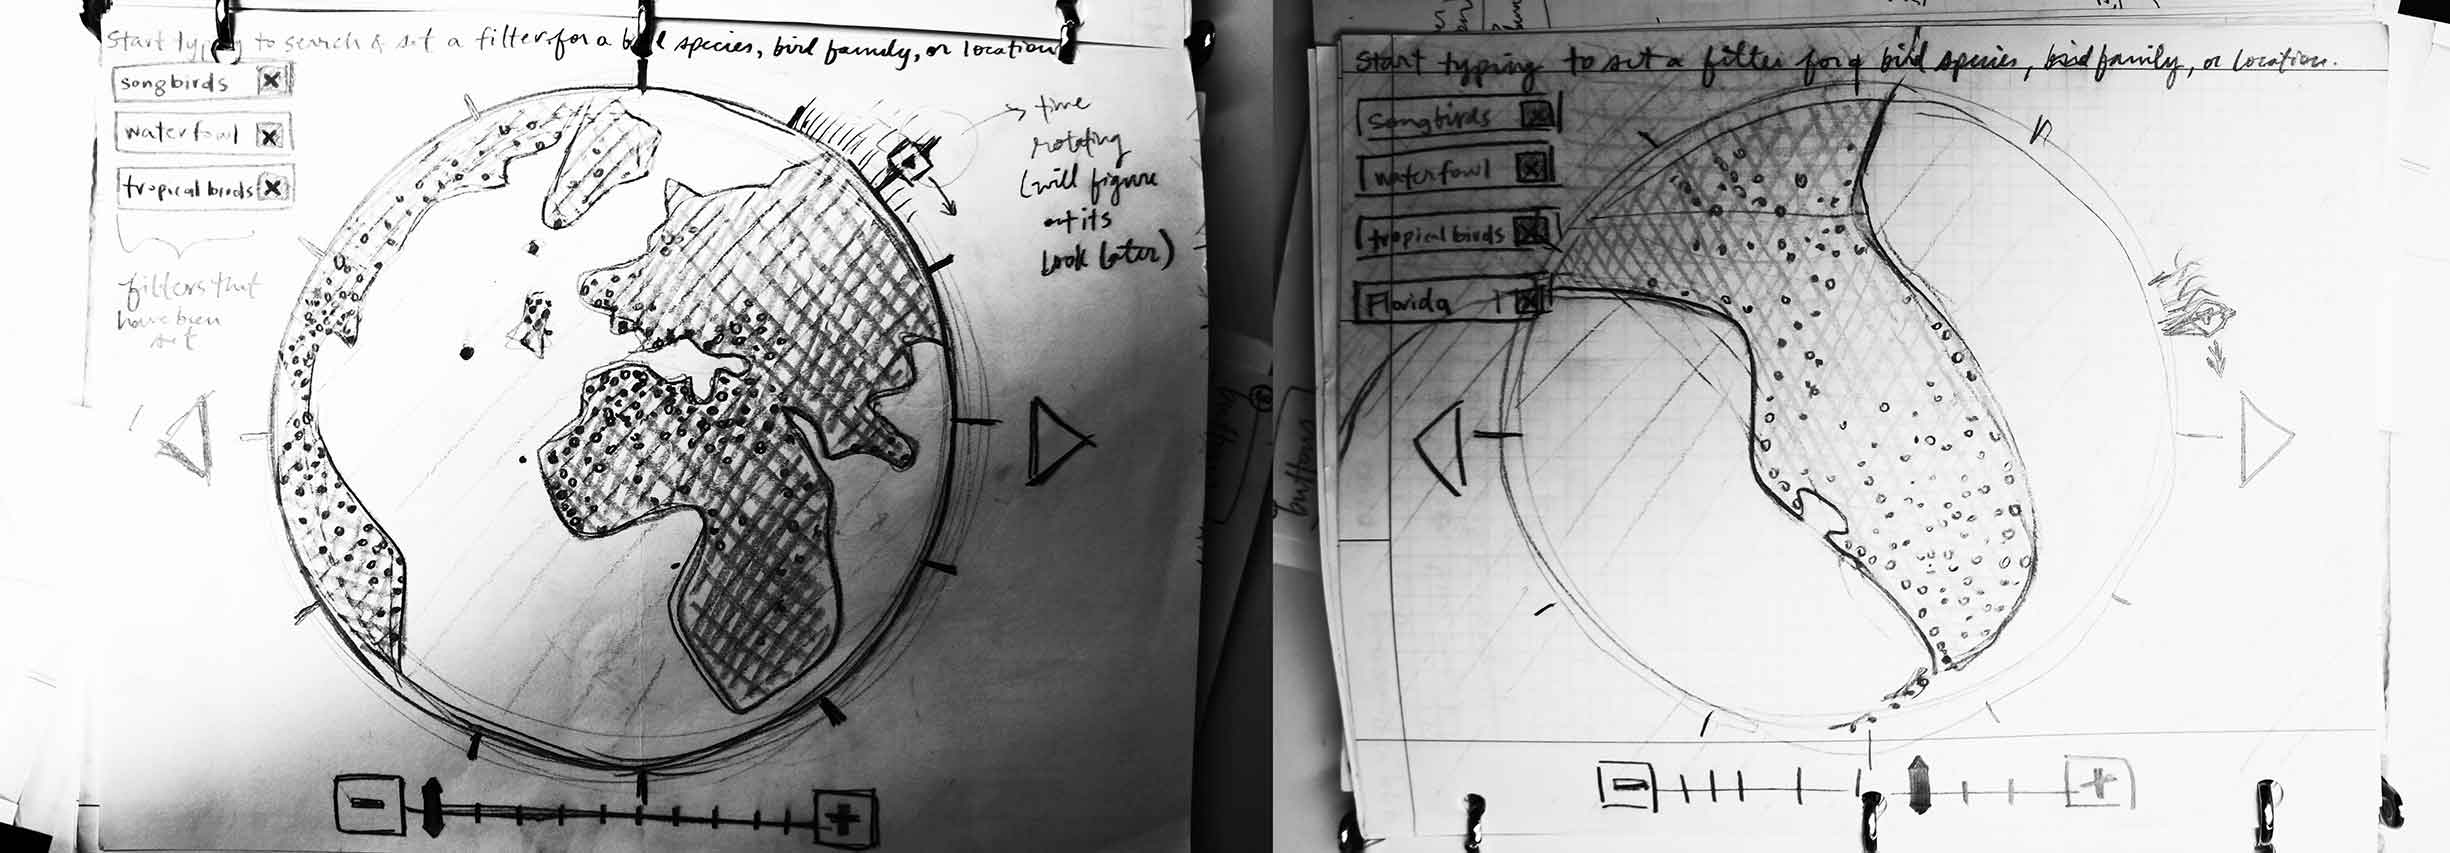 Start typing to search & set a filter for a bird species, bird family, or location
songbirds
waterfowl
tropical birds
filters that
have been
set
time
rotating
(will figure
out its
look later)
Start typing to set a filter for a bird species, bird family, or location.
songbirds
waterfowl
tropical birds
Florida
buttons